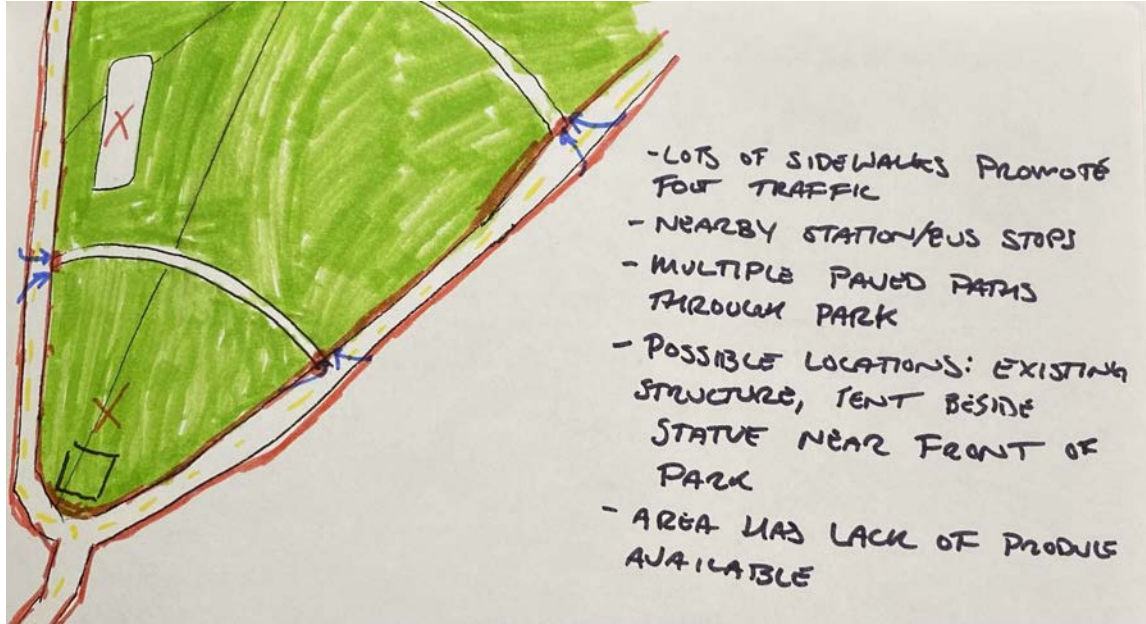 - LOTS OF SIDEWALKS PROMOTE
FOOT TRAFFIC
- NEARBY STATION/BUS STOPS
- MULTIPLE PAVED PATHS
THROUGH PARK
- POSSIBLE LOCATIONS: EXISTING
STRUCTURE, TENT BESIDE
STATUE NEAR FRONT OF
PARK
- AREA HAS LACK OF PRODUCE
AVAILABLE